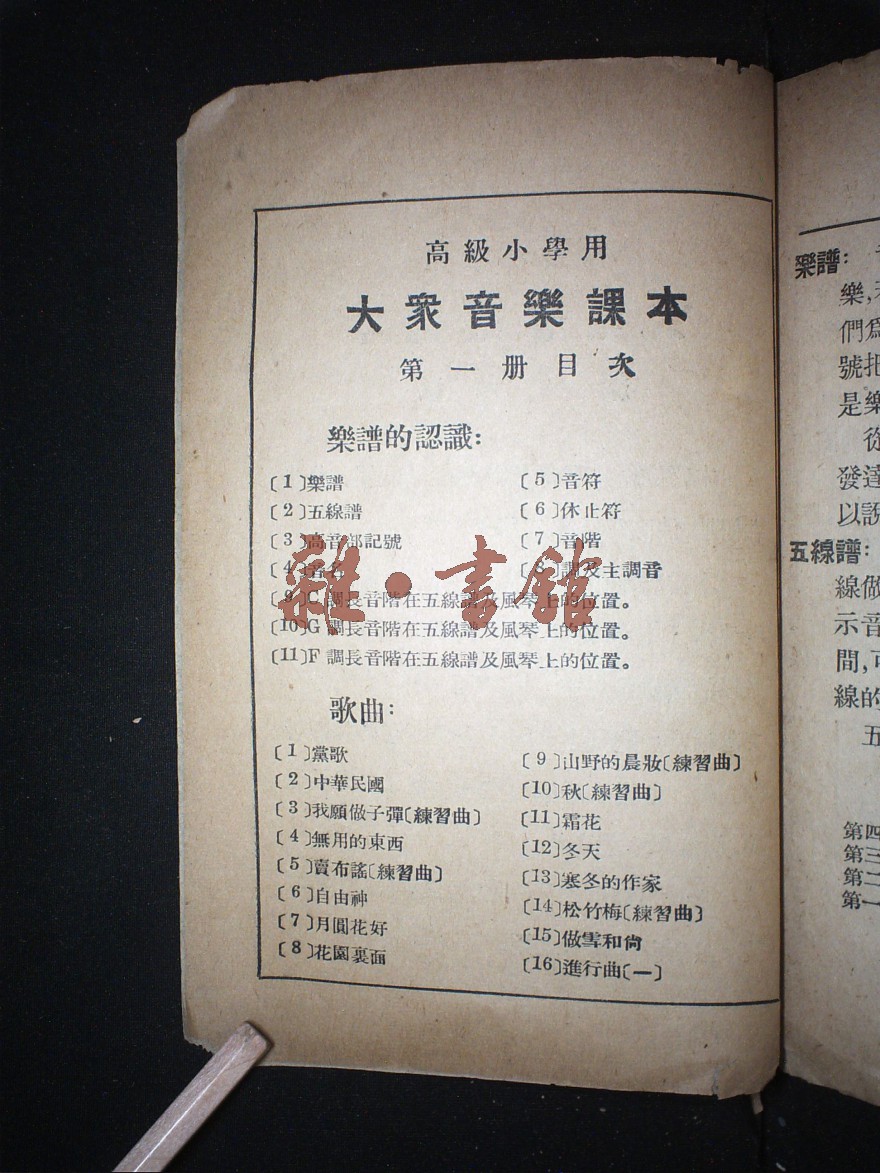 高級小學用
大衆音樂課本
第一册目次
樂譜的認識：
〔1〕樂譜
〔2〕五線譜
〔3〕高音部記號
〔4〕音名
〔5〕音符
〔6〕休止符
〔7〕音階
〔8〕調及主調音
〔9〕C調長音階在五線譜及風琴上的位置。
〔10〕G調長音階在五線譜及風琴上的位置。
〔11〕F調長音階在五線譜及風琴上的位置。
歌曲：
〔1〕黨歌
〔2〕中華民國
〔3〕我願做子彈〔練習曲〕
〔4〕無用的東西
〔5〕賣布謠〔練習曲〕
〔6〕自由神
〔7〕月圓花好
〔8〕花園裏面
〔9〕山野的晨妝〔練習曲〕
〔10〕秋〔練習曲〕
〔11〕霜花
〔12〕冬天
〔13〕寒冬的作家
〔14〕松竹梅〔練習曲〕
〔15〕做雪和尙
〔16〕進行曲〔一〕
雜·書館
樂譜：
樂，
們爲
號把
是樂
發達
以說
五線譜：
線做
示音
間，可
線的
五
第四
第三
第二
第一